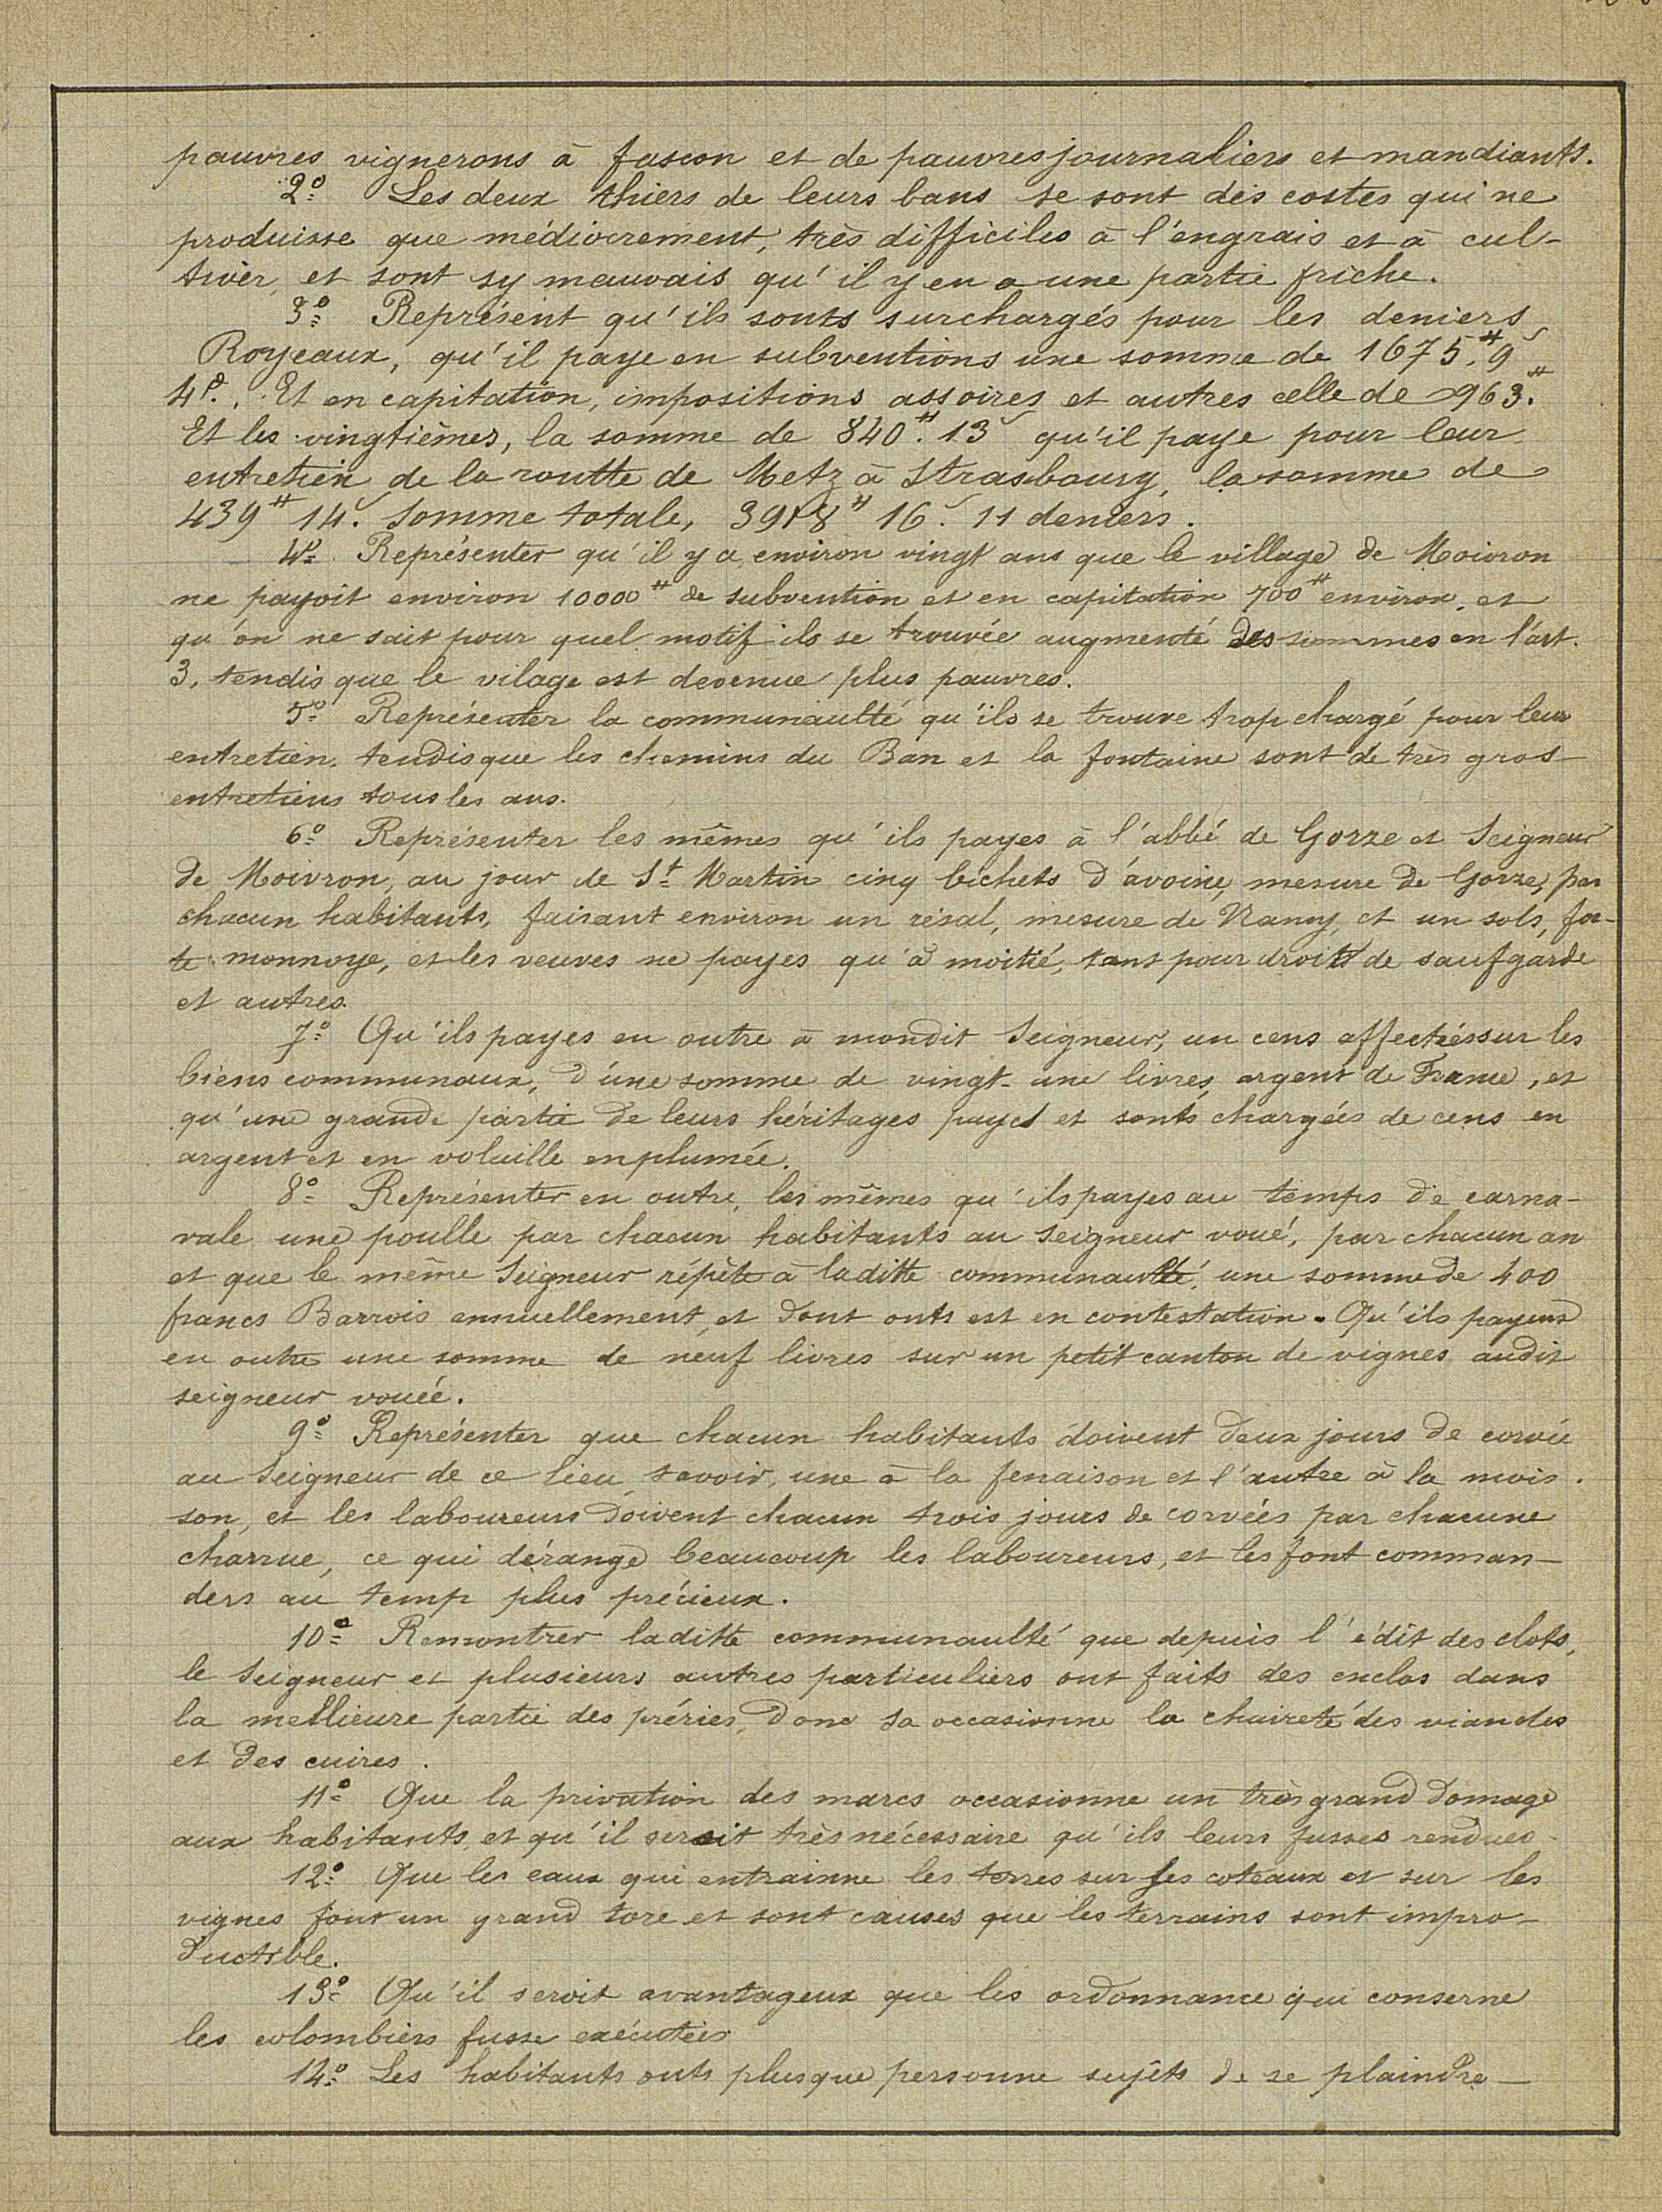 pauvres vignerons à fascon et de pauvres journaliers et mandiants.
2° Les deux thiers de leurs bans se sont des costes qui ne
produisse que médiocrement, très difficiles à l'engrais et à cul-
tiver, et sont sy mauvais qu'il y en a une partie friche.
3° Représent qu'ils sonts surchargés pour les deniers
Royeaux, qu'il paye en subventions une somme de 1675.# 9
4d. Et en capitation, impositions assoires et autres celle de 963.#
Et les vingtièmes, la somme de 840.# 13 qu'il paye pour leur
entretien de la routte de Metz à Strasbourg, la somme de
439# 14. Somme totale, 3918# 16. 11 deniers.
4° Représenter qu'il y a environ vingt ans que le village de Moivron
ne payoit environ 10000# de subvention et en capitation 700# environ, et
qu'on ne sait pour quel motif ils se trouvée augmenté des sommes en l'art.
3, tendis que le vilage est devenue plus pauvres.
5° Représenter la communaulté qu'ils se trouve trop chargé pour leur
entretien, tendisque les chemins du Ban et la fontaine sont de très gros
entretiens tous les ans.
6° Représenter les mêmes qu'ils payes à l'abbé de Gorze et Seigneur
de Moivron, au jour de St Martin cinq bichets d'avoine, mesure de Gorze, par
chacun habitants, faisant environ un résal, mesure de Nancy, et un sols, for-
te monnoye, et les veuves ne payes qu'à moitié, tant pour droits de saufgarde
et autres.
7° Qu'ils payes en outre à mondit Seigneur, un cens affectés sur les
biens communaux, d'une somme de vingt-une livres, argent de France, et
qu'une grande partie de leurs héritages payes et sonts chargées de cens en
argent et en volaille enplumée.
8° Représenter en outre, les mêmes qu'ils payes au temps de carna-
vale une poulle par chacun habitants au seigneur voué, par chacun an
et que le même Seigneur répète à laditte communauté, une somme de 400
francs Barrois annuellement, et dont onts est en contestation. Qu'ils payent
en outre une somme de neuf livres sur un petit canton de vignes audit
seigneur vouée.
9° Représenter que chacun habitants doivent deux jours de corvée
au Seigneur de ce lieu, savoir, une à la fenaison et l'autre à la mois-
son, et les laboureurs doivent chacun trois jours de corvées par chacune
charrue, ce qui dérange beaucoup les laboureurs, et les font comman-
ders au temp plus précieux.
10° Remontrer laditte communaulté que depuis l'édit des clots,
le Seigneur et plusieurs autres particuliers ont faits des enclos dans
la mellieure partie des préries, donc sa occasionne la chaireté des viandes
et des cuires.
11° Que la privation des marcs occasionne un très grand domage
aux habitants, et qu'il seroit très nécessaire qu'ils leurs fusses rendues.
12° Que les eaux qui entrainne les terres sur les coteaux et sur les
vignes font un grand tore et sont causes que les terrains sont impro-
ductible.
13° Qu'il seroit avantageux que les ordonnance qui conserne
les colombiers fusse exécutées
14° Les habitants onts plus que personne sujêts de se plaindre